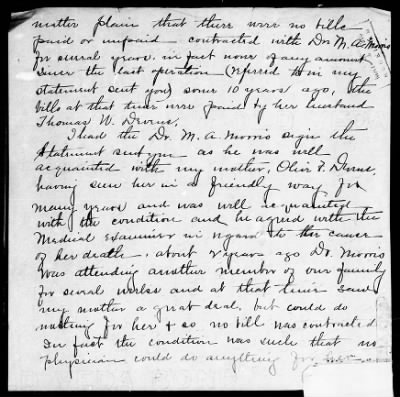 matter plain that there were no bills
paid or unpaid contracted with Dr. M. A. Morris
for several years. in fact none of any amount
since the last operation (referred to in my
statement sent you) some 10 years ago, the
bills at that time were paid by her husband
Thomas W. Devine.
I had the Dr. M. A. Morris sign the
statement sent you as he was well
acquainted with my mother, Olive P. Devine,
having seen her in a friendly way for
many years and was well acquainted
with the condition and he agreed with the
Medical examiner in regard to the cause
of her death. about 2 years ago Dr. Morris
was attending another member of our family
for several weeks and at that time saw
my mother a great deal, but could do
nothing for her & so no bill was contracted
In fact the condition was such that no
physician could do anything for her